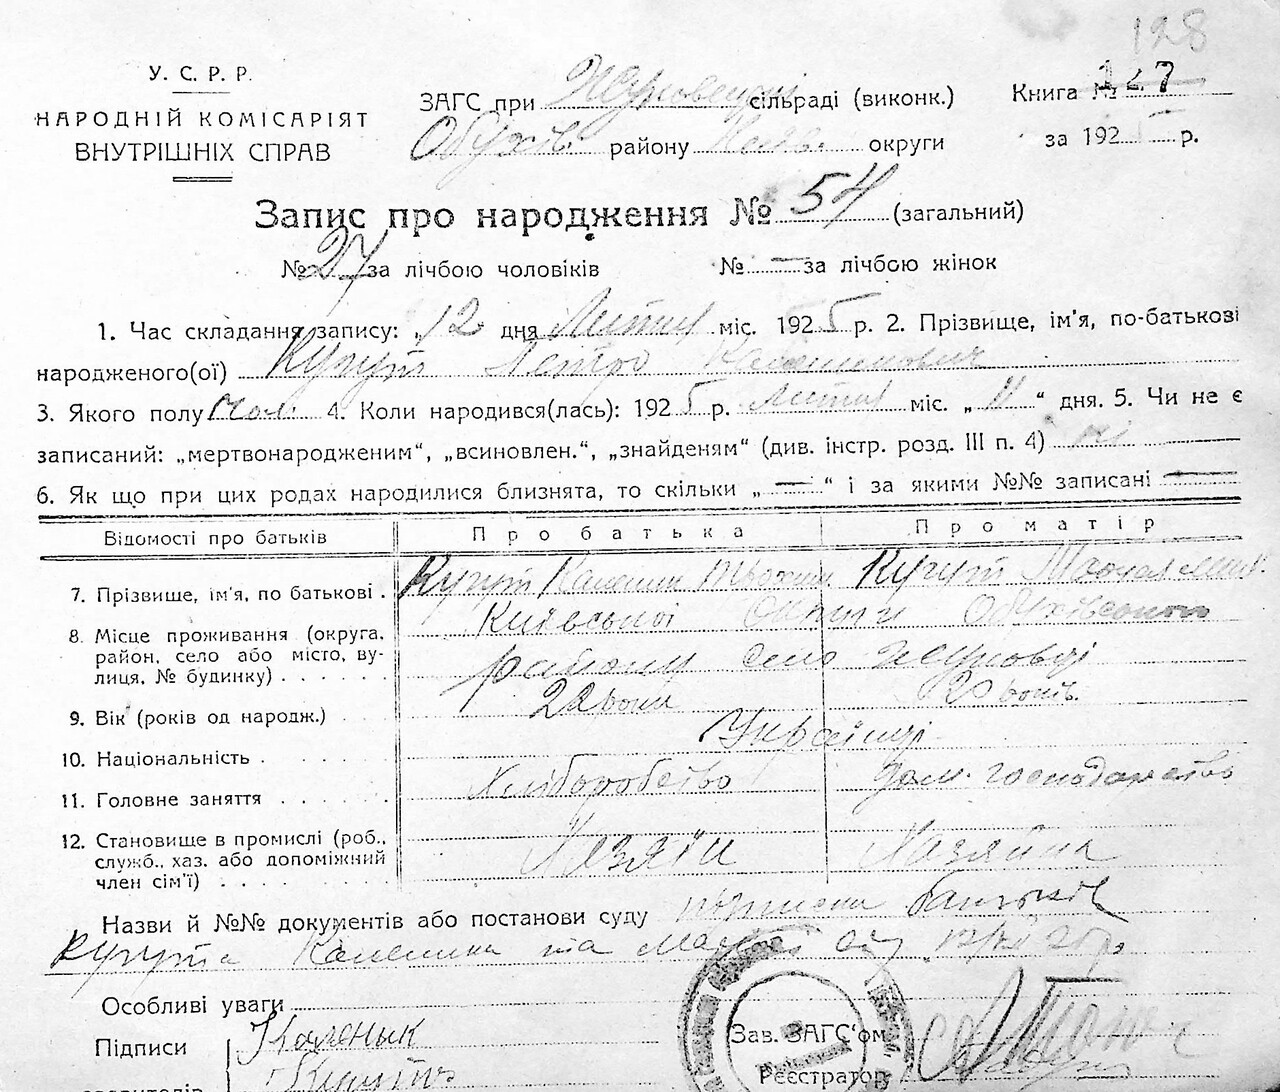 128
У. С. Р. Р.
НАРОДНІЙ КОМІСАРІЯТ
ВНУТРІШНІХ СПРАВ
ЗАГС при сільраді (виконк.)
Обухів. району Київ. округи
Книга № 127
за 192 р.
Запис про народження № 54 (загальний)
№ 27 за лічбою чоловіків № — за лічбою жінок
1. Час складання запису: „12 дня Липня міс. 1925 р. 2. Прізвище, ім'я, по-батькові
народженого(ої) Кугут Петро Калеников­ич
3. Якого полу чол. 4. Коли народився(лась): 1925 р. Липня міс. „11“ дня. 5. Чи не є
записаний: „мертвонародженим“, „всиновлен.“, „знайденям“ (див. інстр. розд. III п. 4) ні
6. Як що при цих родах народилися близнята, то скільки „—“ і за якими №№ записані —
Відомості про батьків Про батька Про матір
7. Прізвище, ім'я, по батькові . Кугут Каленик Кугут
8. Місце проживання (округа, район, село або місто, вулиця, № будинку) . . . . . . Київської округи Обухівського
району село
9. Вік (років од народж.) . 22 роки 20 років.
10. Національність . . . . . Українці
11. Головне заняття . . . . . . Хліборобство Дом. господарство
12. Становище в промислі (роб., служб., хаз. або допоміжний член сім'ї) . . . . . Хазяїн Хазяйка
Назви й №№ документів або постанови суду батьків
Кугута Каленика та
Особливі уваги
Підписи Каленык
Кугут
Зав. ЗАГС'ом
Реєстратор